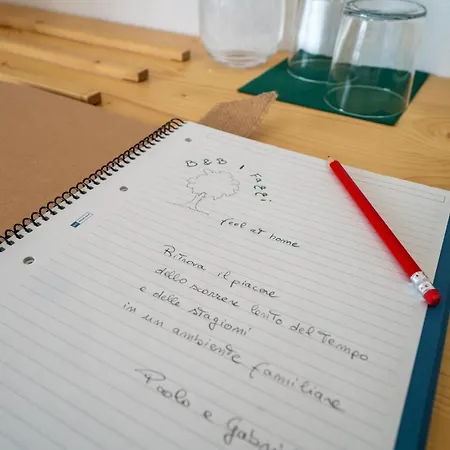 B & B I Faggi
feel at home
Ritrova il piacere
dello scorrere lento del tempo
e delle stagioni
in un ambiente familiare
Paolo e